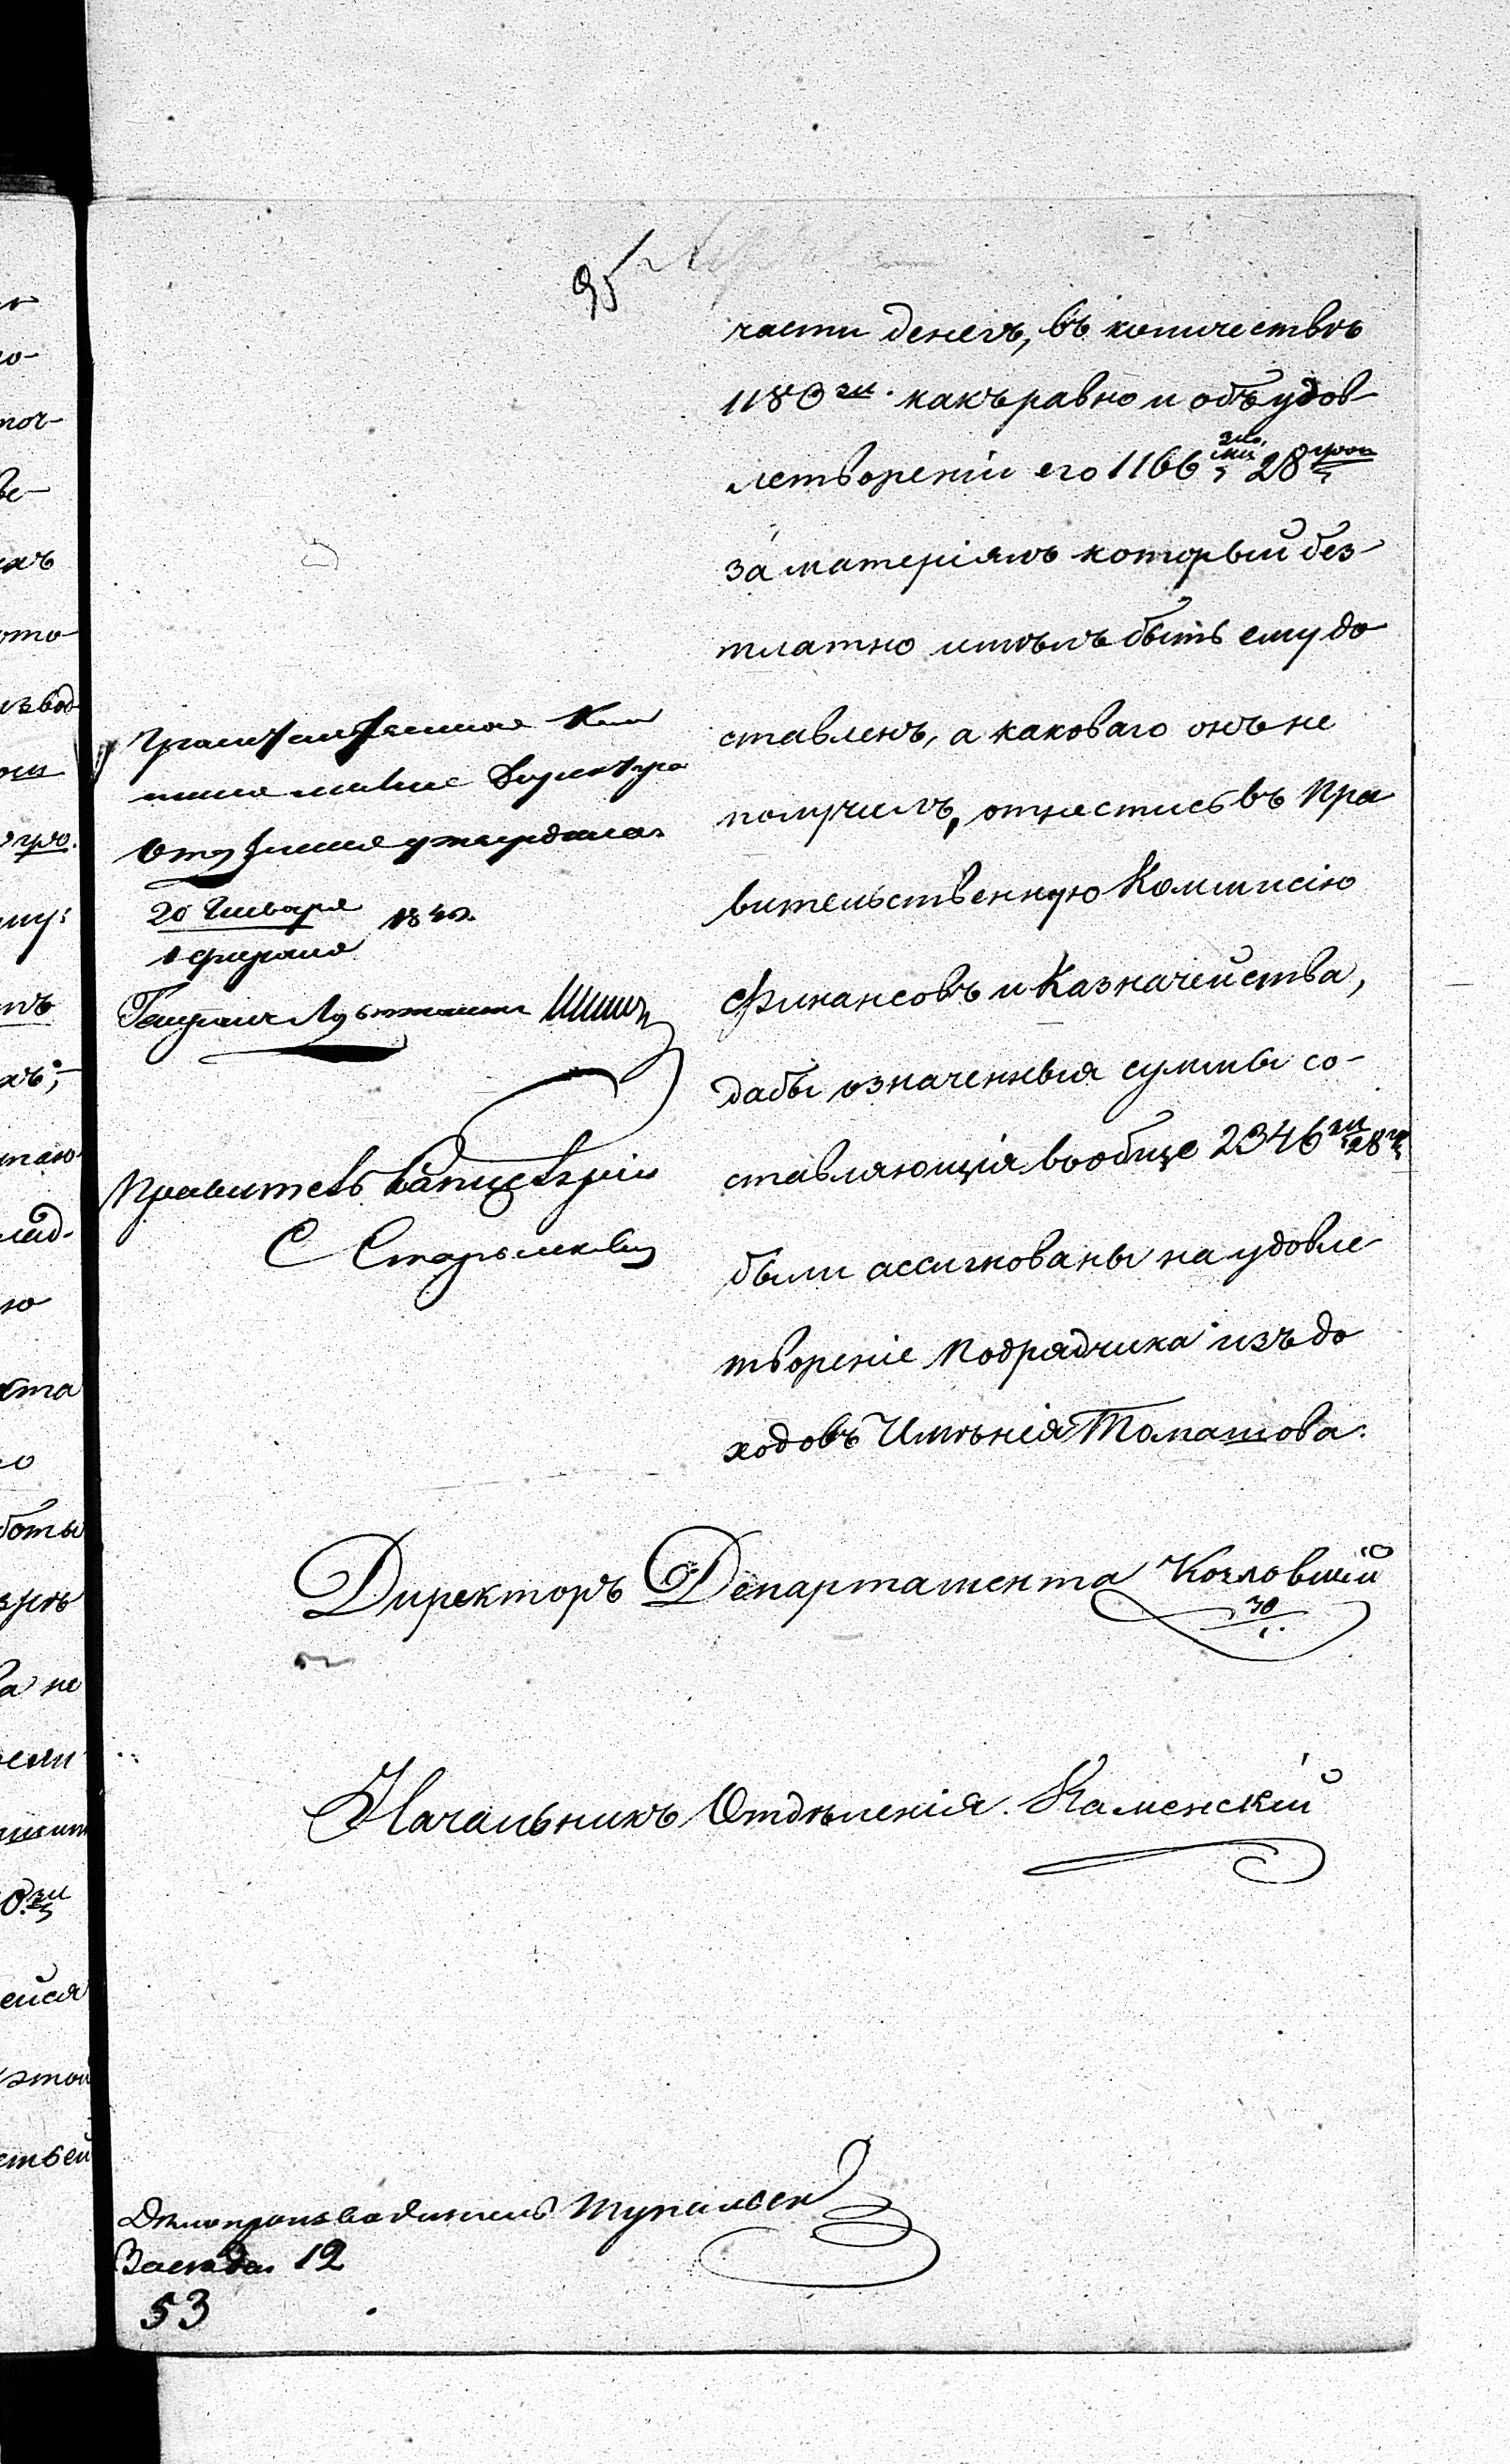 95
части денегъ, въ количествѣ
1180 зл. какъ равно и объ удов-
летвореніи его 1166 зло. 28 грош
за матеріялъ который без-
платно имѣлъ быть ему до
ставленъ, а каковаго онъ не
получилъ, отнестись въ Пра
вительственную Коммисію
Финансовъ и Казначейства,
дабы означенныя суммы со-
ставляющія вообще 2346 зл 28 гр
были ассигнованы на удовле-
твореніе Подрядчика изъ до
ходовъ Имѣнія Томашова.
Правительственная Ком
Директора
утвердила
20 Января
1 Февраля 1840.
Генералъ Лейтенантъ Шипов
Правитель Канцеляріи
С Старынкевич
Директоръ Департамента Козловскій
Начальникъ Отдѣленія. Каменскій
Дѣлопроизводитель
Заседа 12
53